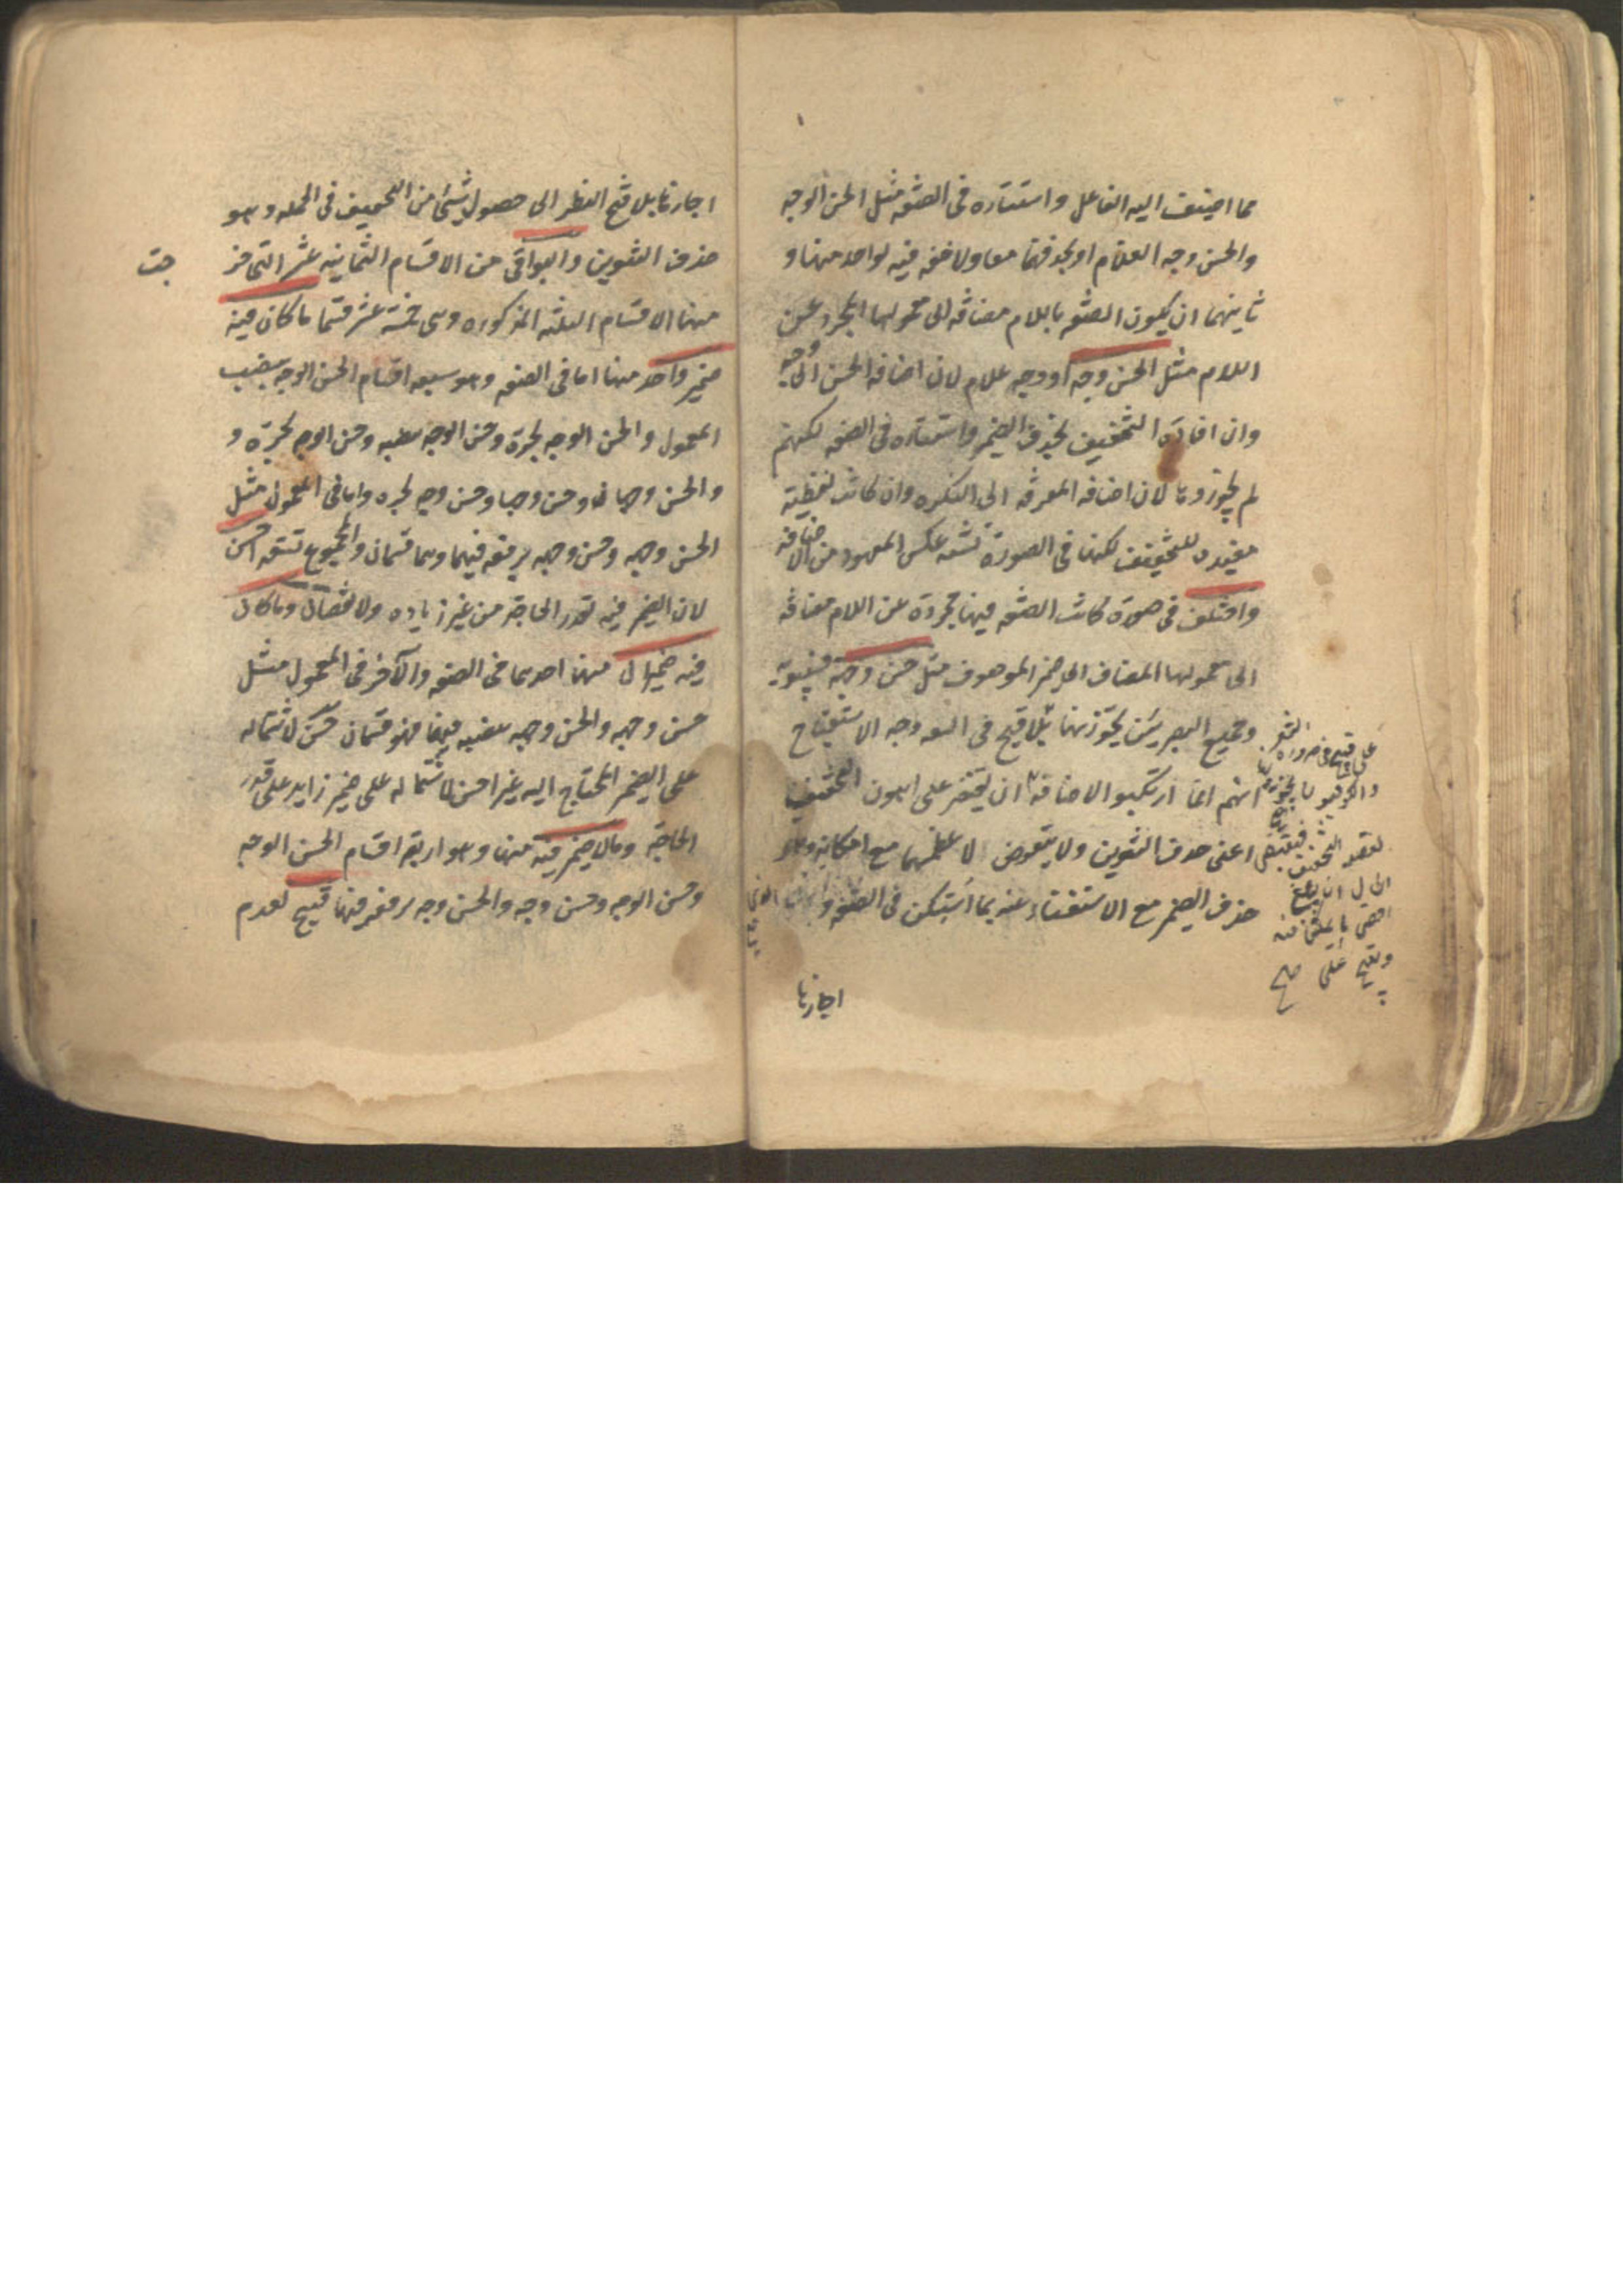 مما اضيف اليه الفاعل واستتاره فى الصفة مثل الحسن الوجه
والحسن وجه الغلام او بحذفهما معا ولا خفة فيه لواحد منها و
ثانيهما ان يكون الصفة باللام مضافة الى معمولها المجرد عن
اللام مثل الحسن وجه او وجه غلام لان اضافة الحسن الى وجه
وان افادة التخفيف بحذف الضمير واستتاره فى الصفة لكنهم
لم يجوزوها لان اضافة المعرفة الى النكرة وان كانت لفظية
مفيدة للتخفيف لكنها فى الصورة تشبه عكس المعهود من الاضافة
واختلف فى صورة كانت الصفة فيها مجردة عن اللام مضافة
الى معمولها المضاف الى ضمير الموصوف مثل حسن وجهه فسيبويه
وجميع البصريين يجوزنها على قبح فى وجه الاستقباح
انهم انما ارتكبوا الاضافة ان يقتصر على اهون التخفيف
اعنى حذف التنوين ولا يتعرض لاعظمهما مع امكانه وهو
حذف الضمير مع الاستغناء عنه بما استكن فى الصفة و
على قبح فى ضرورة الشعر
والكوفيون
لقصد التخفيف فيقتضى
الحال ان يبلغ
اقصى ما يمكن منه
ويقبح
صح
اجازها
اجازها بلا قبح النظر الى حصول شئ من التخفيف فى الجملة وهو
حذف التنوين والبواقى من الاقسام الثمانية عشر التى خرج
جت
منها الاقسام الثلثة المذكورة وهى خمسة عشر قسما ما كان فيه
ضمير واحد منها اما فى الصفة وهو سبعة اقسام الحسن الوجه بنصب
المعمول والحسن الوجه بجره وحسن الوجه بنصبه وحسن الوجه بجره و
والحسن وجها وحسن وجها وحسن وجه بجره واما فى المعمول مثل
الحسن وجهه وحسن وجهه برفعه فيهما وهما قسمان والمجموع تسعة احسن
لان الضمير فيه بقدر الحاجة من غير زيادة ولا نقصان وما كان
فيه ضميران منها احدهما فى الصفة والآخر فى المعمول مثل
حسن وجهه والحسن وجهه بنصبه فيهما فهو قسمان حسن لاشتماله
على الضمير المحتاج اليه غير احسن لاشتماله على ضمير زايد على قدر
الحاجة وما لا ضمير فيه منها وهو اربعة اقسام الحسن الوجه
وحسن الوجه وحسن وجه والحسن وجه برفعه فيها قبيح لعدم